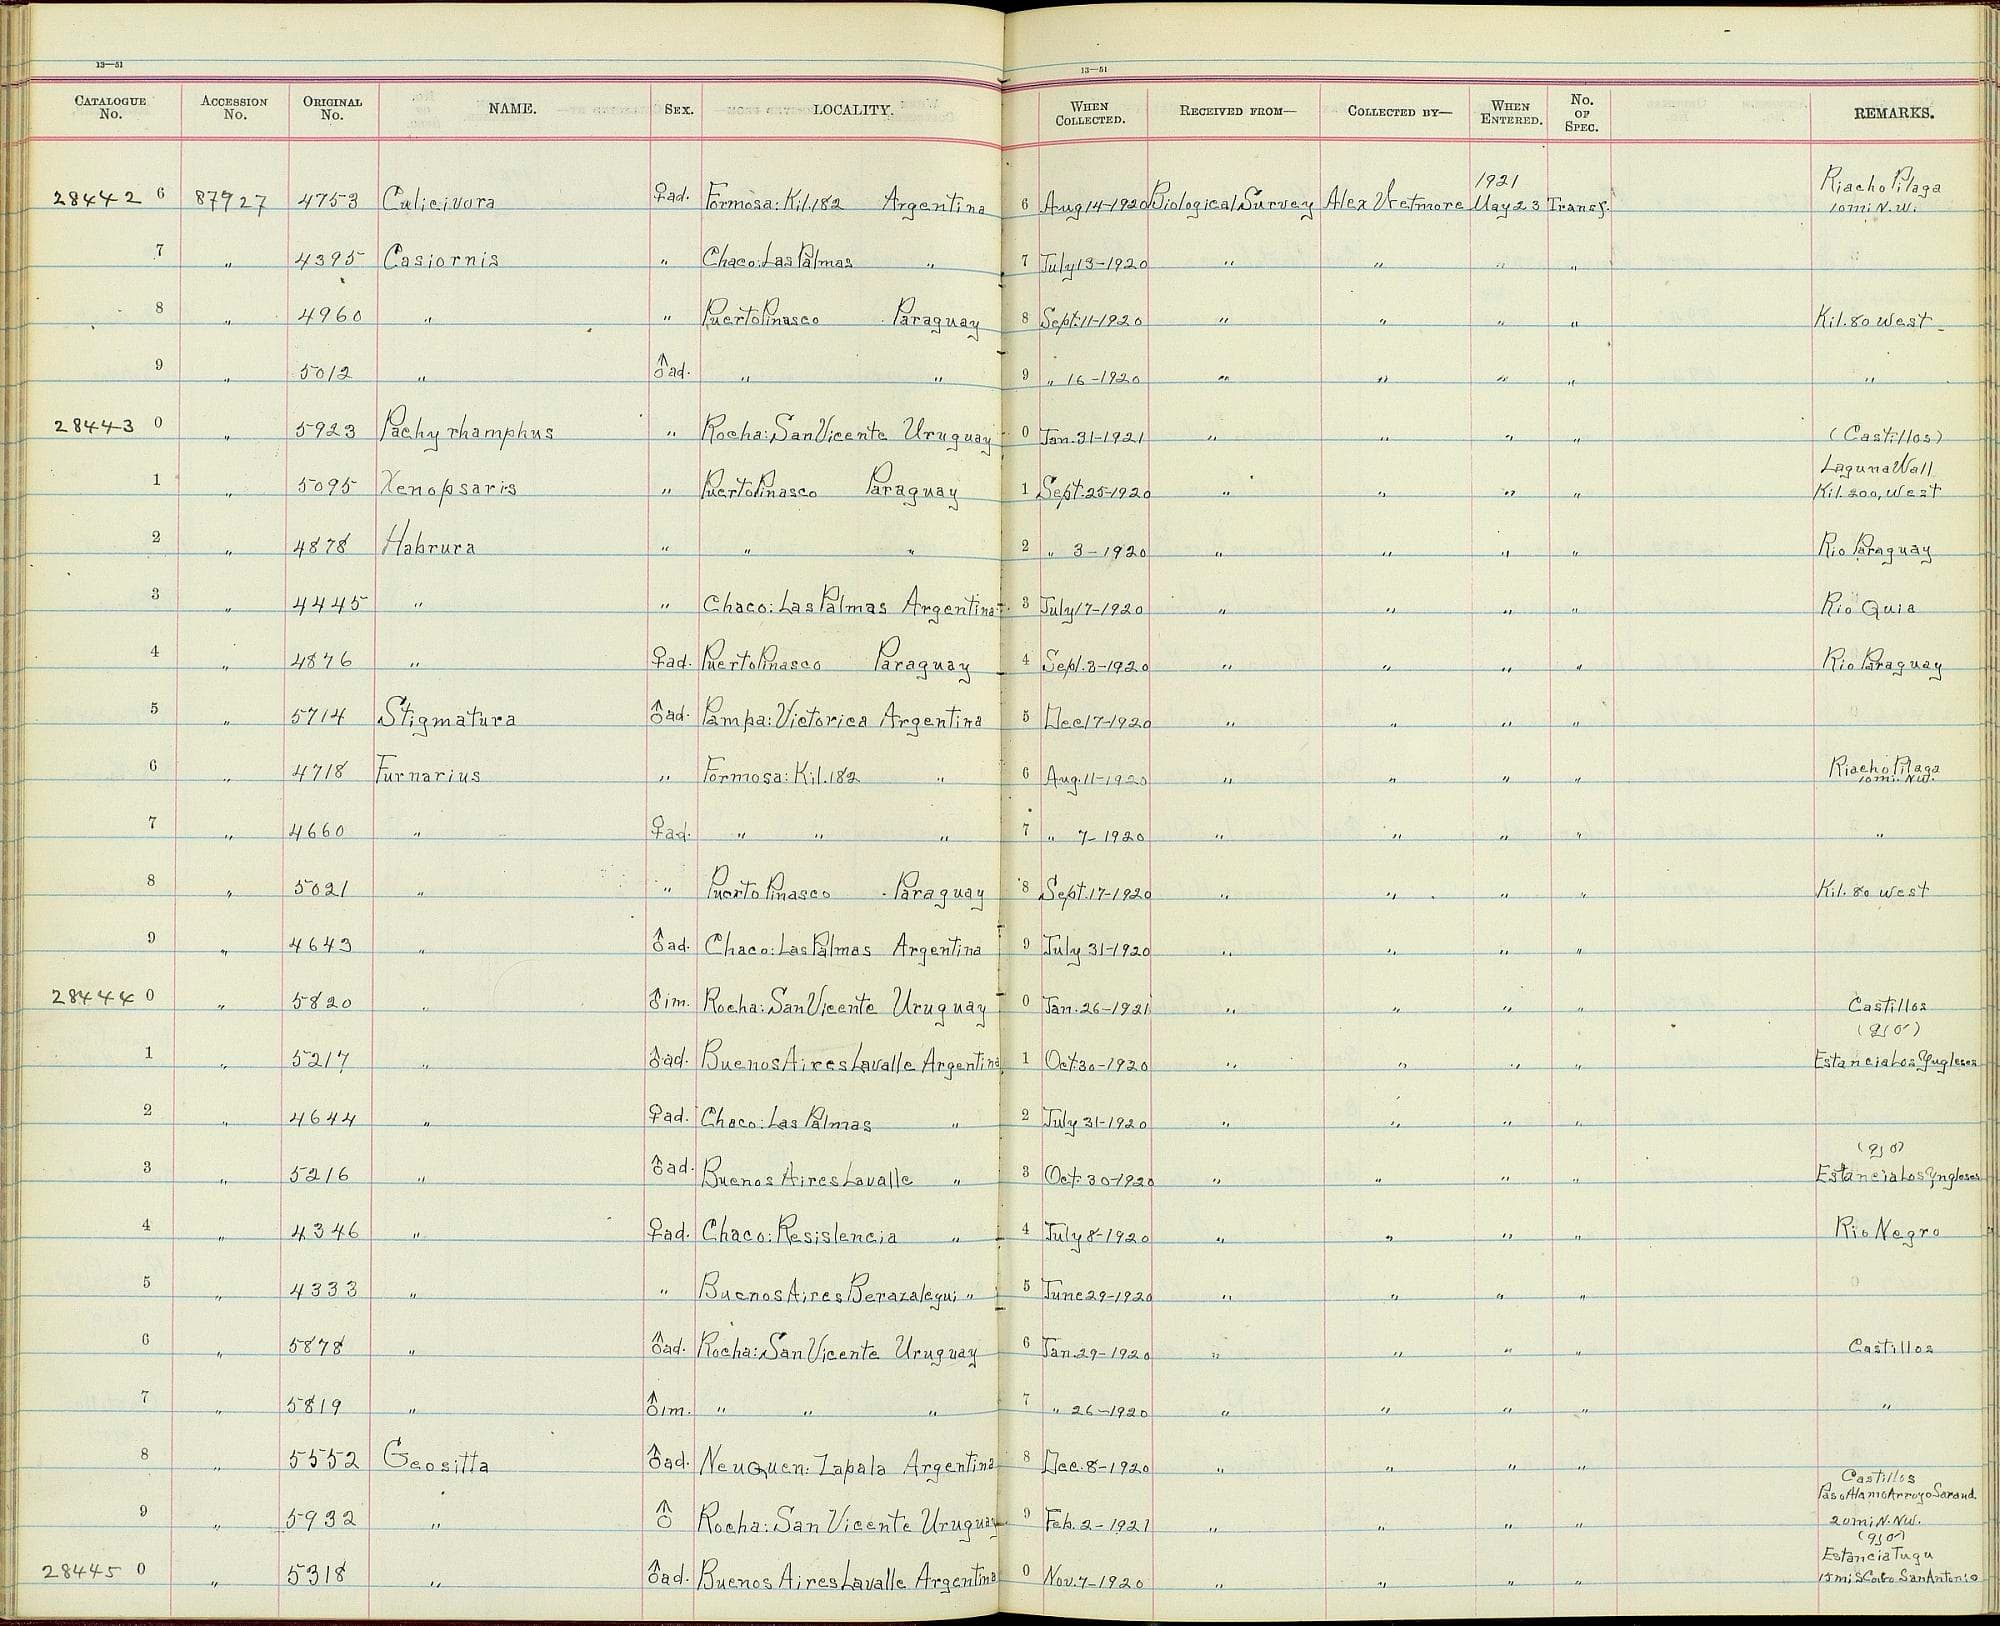 13—51 13—51
CATALOGUE No. ACCESSION No. ORIGINAL No. NAME. SEX. LOCALITY. WHEN COLLECTED. RECEIVED FROM— COLLECTED BY— WHEN ENTERED. No. OF SPEC. REMARKS.
28442 6 87927 4753 Culicivora ♀ad. Formosa: Kil.182 Argentina 6 Aug 14-1920 Biological Survey Alex Wetmore 1921 May 23 Transf. Riacho Pilaga 10 mi N.W.
7 " 4395 Casiornis " Chaco: Las Palmas " 7 July 13-1920 " " " "
8 " 4960 " " Puerto Pinasco Paraguay 8 Sept. 11-1920 " " " " Kil. 80 west
9 " 5012 " ♂ad. " " 9 " 16-1920 " " " " "
28443 0 " 5923 Pachyrhamphus " Rocha: San Vicente Uruguay 0 Jan. 31-1921 " " " " (Castillos)
1 " 5095 Xenopsaris " Puerto Pinasco Paraguay 1 Sept. 25-1920 " " " " Laguna Wall Kil. 200, west
2 " 4878 Habrura " " " 2 " 3-1920 " " " " Rio Paraguay
3 " 4445 " " Chaco: Las Palmas Argentina 3 July 17-1920 " " " " Rio Quia
4 " 4876 " ♀ad. Puerto Pinasco Paraguay 4 Sept. 3-1920 " " " " Rio Paraguay
5 " 5714 Stigmatura ♂ad. Pampa: Victorica Argentina 5 Dec 17-1920 " " " "
6 " 4718 Furnarius " Formosa: Kil. 182 " 6 Aug. 11-1920 " " " " Riacho Pilaga 10 mi. NW.
7 " 4660 " ♀ad. " " " 7 " 7-1920 " " " " "
8 " 5021 " " Puerto Pinasco Paraguay 8 Sept. 17-1920 " " " " Kil. 80 west
9 " 4643 " ♂ad. Chaco: Las Palmas Argentina 9 July 31-1920 " " " "
28444 0 " 5820 " ♂im. Rocha: San Vicente Uruguay 0 Jan. 26-1921 " " " " Castillos
1 " 5217 " ♂ad. Buenos Aires Lavalle Argentina 1 Oct. 30-1920 " " " " Estancia Los Yngleses
2 " 4644 " ♀ad. Chaco: Las Palmas " 2 July 31-1920 " " " "
3 " 5216 " ♂ad. Buenos Aires Lavalle " 3 Oct. 30-1920 " " " " Estancia Los Yngleses
4 " 4346 " ♀ad. Chaco: Resislencia " 4 July 8-1920 " " " " Rio Negro
5 " 4333 " " Buenos Aires Berazalegui " 5 June 29-1920 " " " "
6 " 5878 " ♂ad. Rocha: San Vicente Uruguay 6 Jan. 29-1920 " " " " Castillos
7 " 5819 " ♂im. " " " 7 " 26-1920 " " " " "
8 " 5552 Geositta ♂ad. Neuquen: Zapala Argentina 8 Dec. 8-1920 " " " "
9 " 5932 " ♂ Rocha: San Vicente Uruguay 9 Feb. 2-1921 " " " " Castillos Paso Alamo Arroyo Sarand. 20 mi N. NW.
28445 0 " 5318 " ♂ad. Buenos Aires Lavalle Argentina 0 Nov. 7-1920 " " " " Estancia Tugu 15 mi S Cabo San Antonio